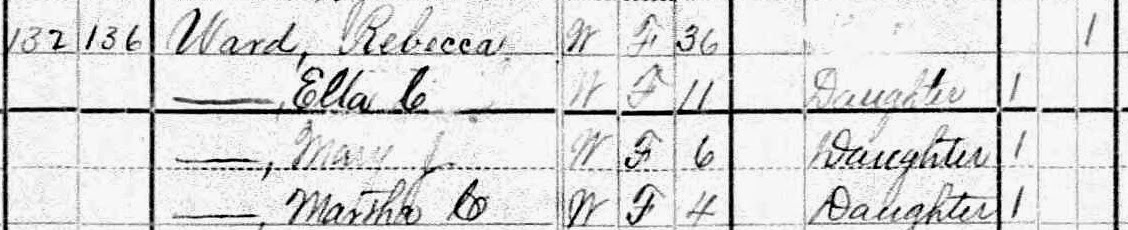 132 136 Ward, Rebecca W F 36 1
——, Ella C W F 11 Daughter 1
——, Mary J W F 6 Daughter 1
——, Martha C W F 4 Daughter 1